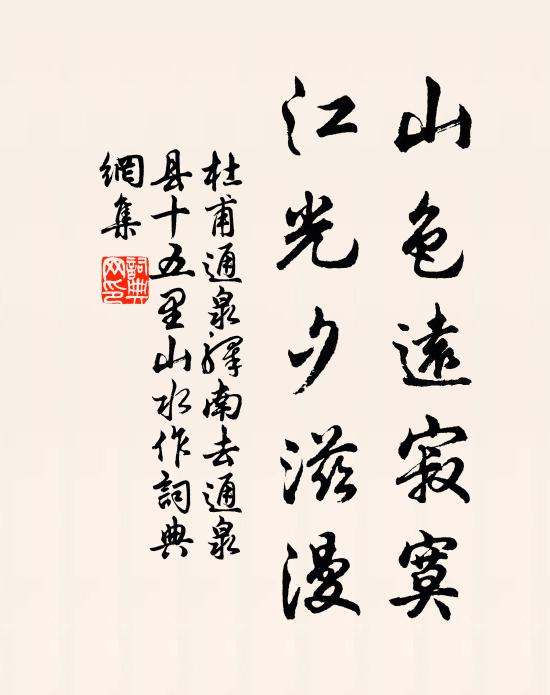 山色遠寂寞
江光夕滋漫
杜甫通泉驛南去通泉
县十五里山水作詞典
網集
詞典
网印